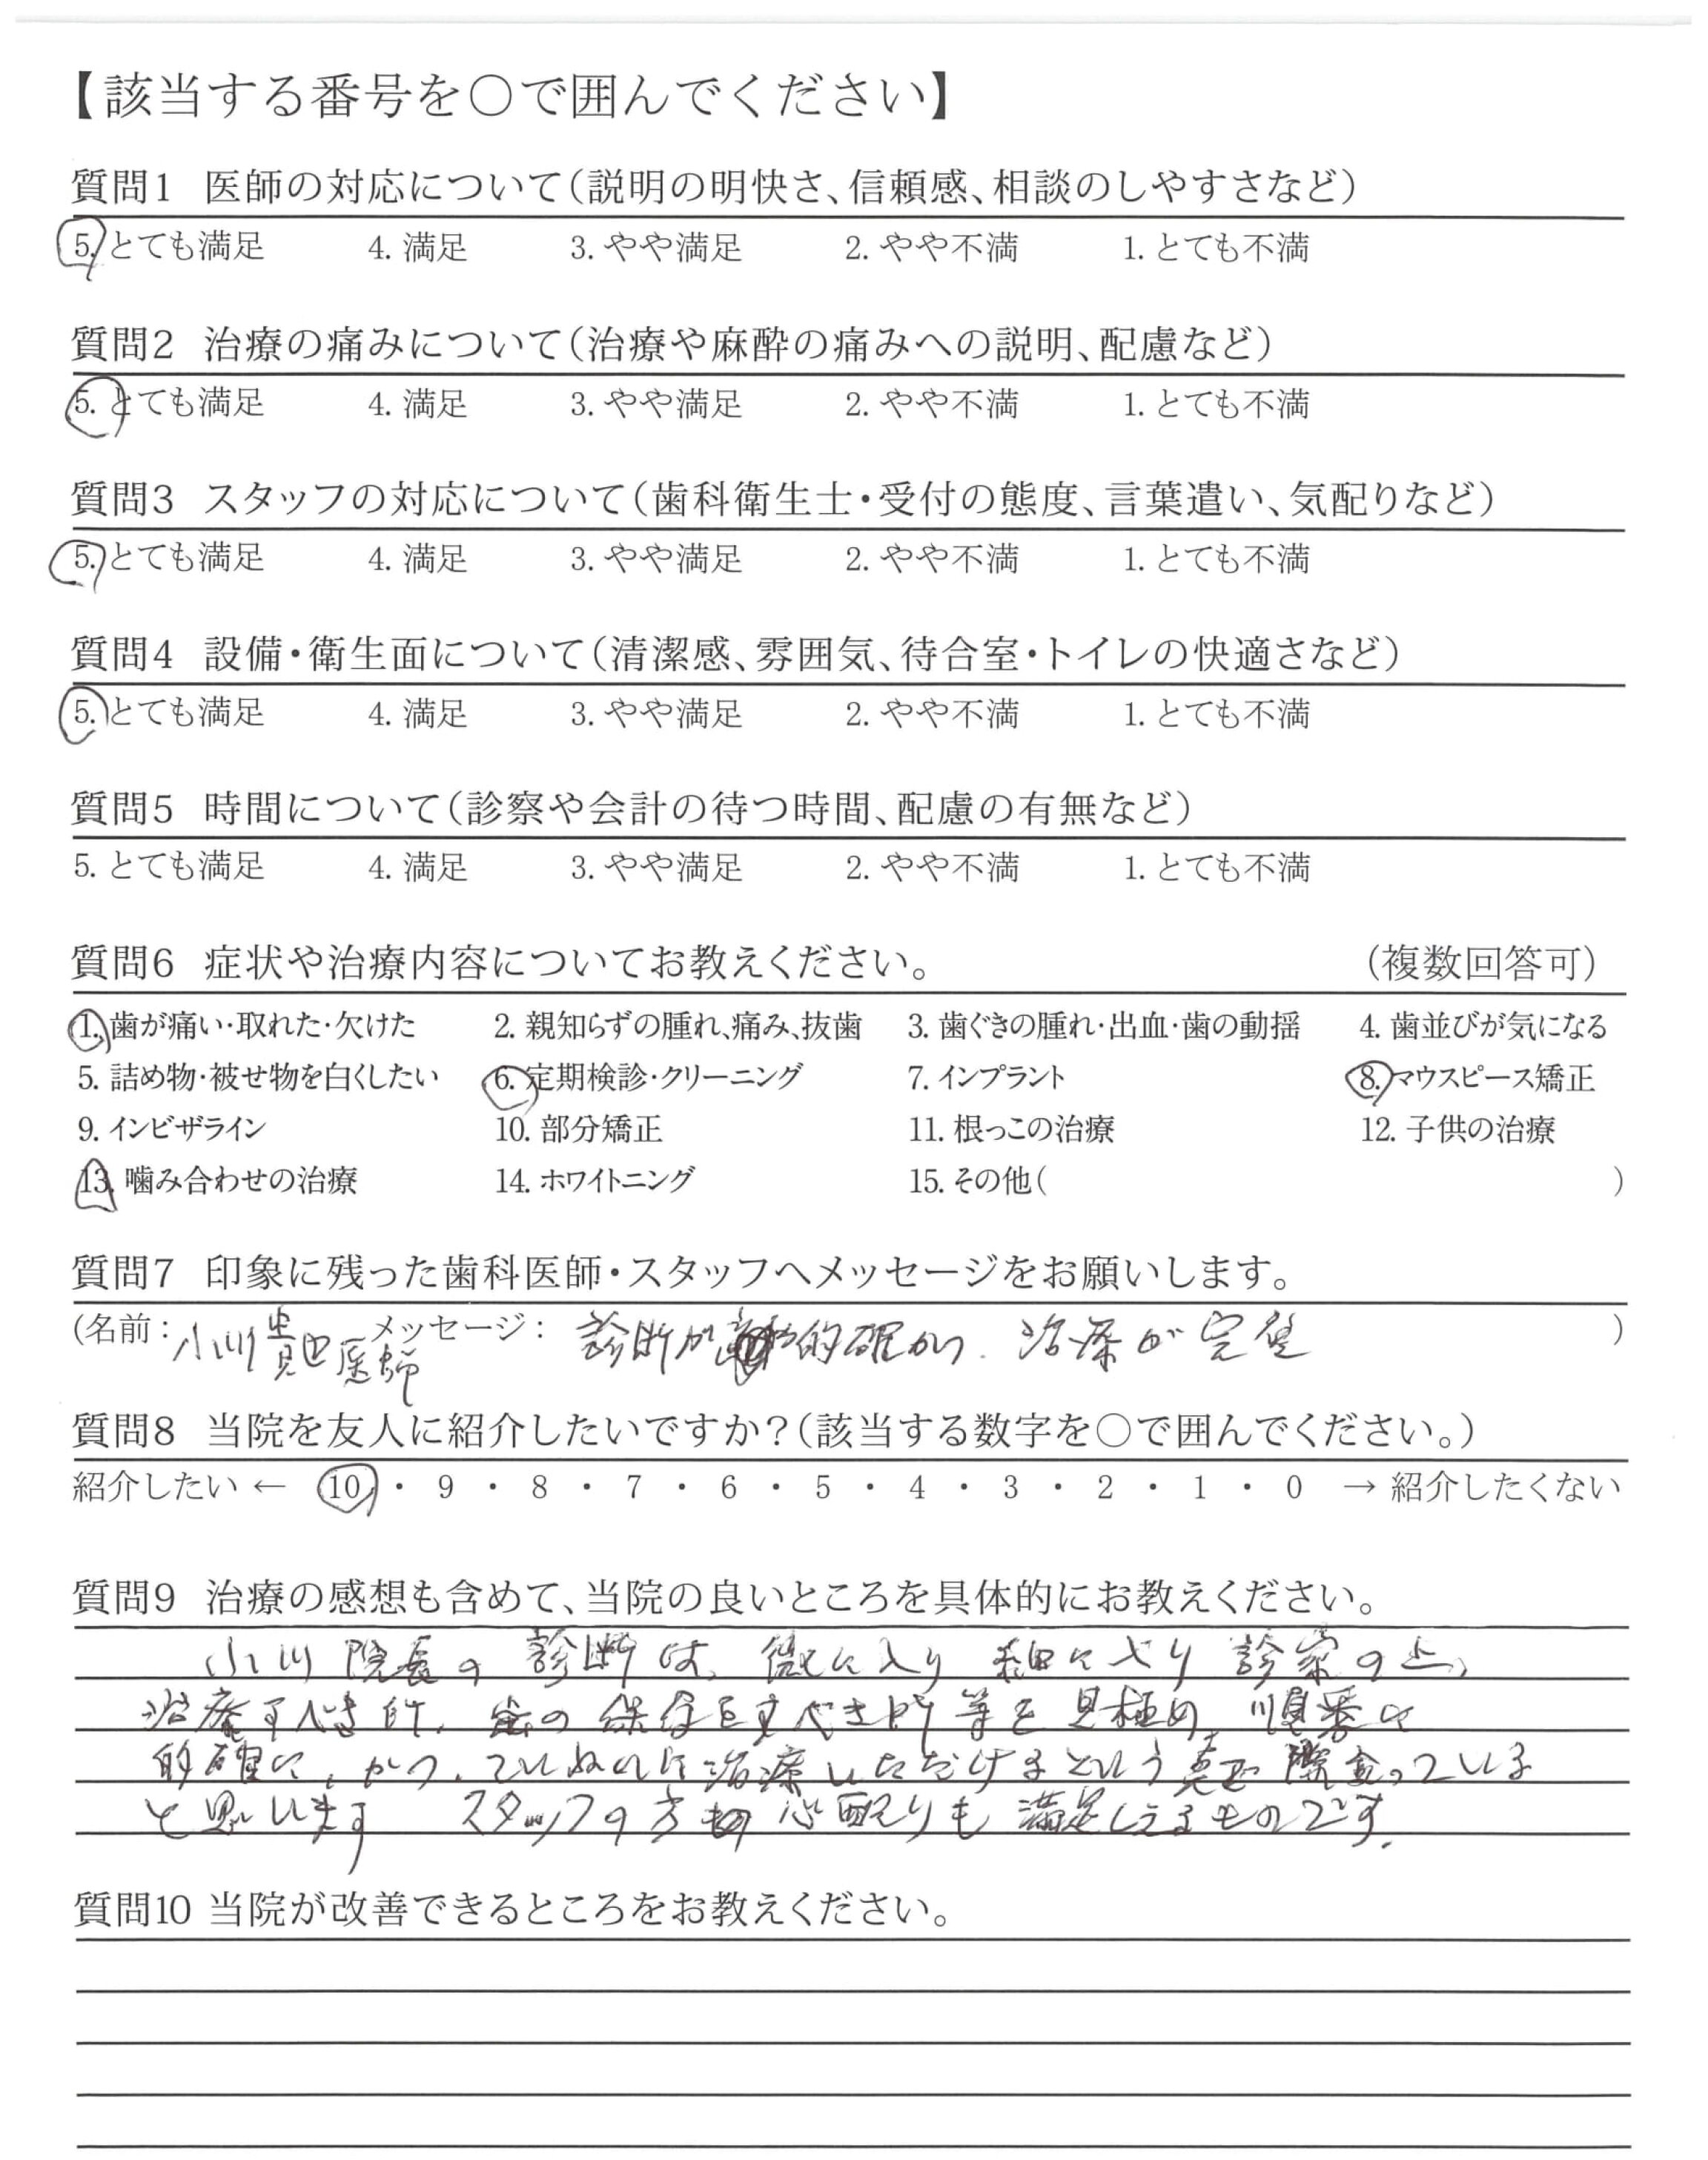 【該当する番号を○で囲んでください】
質問1 医師の対応について(説明の明快さ、信頼感、相談のしやすさなど)
5. とても満足 4. 満足 3. やや満足 2. やや不満 1. とても不満
質問2 治療の痛みについて(治療や麻酔の痛みへの説明、配慮など)
5. とても満足 4. 満足 3. やや満足 2. やや不満 1. とても不満
質問3 スタッフの対応について(歯科衛生士・受付の態度、言葉遣い、気配りなど)
5. とても満足 4. 満足 3. やや満足 2. やや不満 1. とても不満
質問4 設備・衛生面について(清潔感、雰囲気、待合室・トイレの快適さなど)
5. とても満足 4. 満足 3. やや満足 2. やや不満 1. とても不満
質問5 時間について(診察や会計の待つ時間、配慮の有無など)
5. とても満足 4. 満足 3. やや満足 2. やや不満 1. とても不満
質問6 症状や治療内容についてお教えください。 (複数回答可)
1. 歯が痛い・取れた・欠けた 2. 親知らずの腫れ、痛み、抜歯 3. 歯ぐきの腫れ・出血・歯の動揺 4. 歯並びが気になる
5. 詰め物・被せ物を白くしたい 6. 定期検診・クリーニング 7. インプラント 8. マウスピース矯正
9. インビザライン 10. 部分矯正 11. 根っこの治療 12. 子供の治療
13. 噛み合わせの治療 14. ホワイトニング 15. その他( )
質問7 印象に残った歯科医師・スタッフへメッセージをお願いします。
(名前: 小川 医師 メッセージ: 診断が 的確かつ. 治療が完璧 )
質問8 当院を友人に紹介したいですか?(該当する数字を○で囲んでください。)
紹介したい ← 10 ・ 9 ・ 8 ・ 7 ・ 6 ・ 5 ・ 4 ・ 3 ・ 2 ・ 1 ・ 0 → 紹介したくない
質問9 治療の感想も含めて、当院の良いところを具体的にお教えください。
小川院長の診断は、微に入り細に入り診察の上、
治療すべき所、歯の保存をすべき所等を見極め、順番に
的確に、かつ、ていねいに治療いただけるという っている
と思います スタッフの方の心配りも満足しえるものです.
質問10 当院が改善できるところをお教えください。